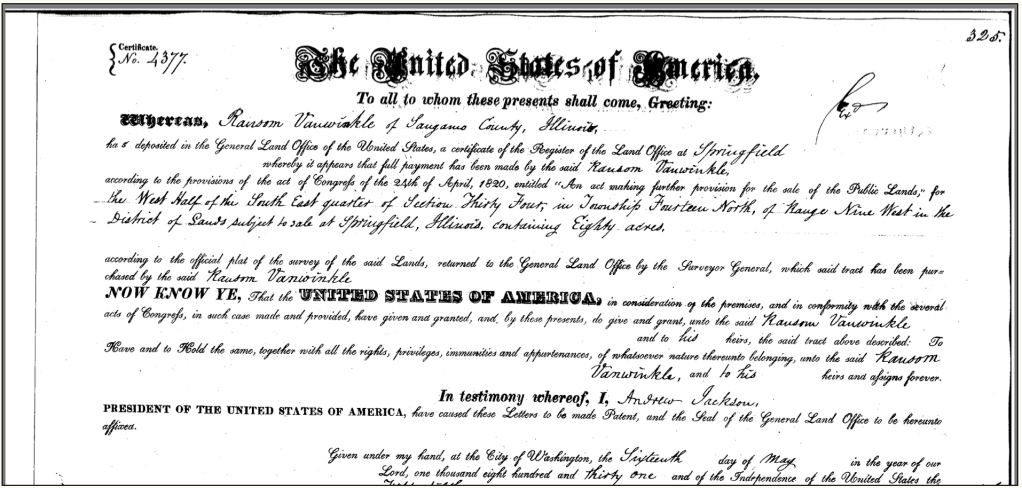 325.
Certificate.
No. 4377.
The United States of America.
To all to whom these presents shall come, Greeting:
Whereas, Ransom Vanwinkle of Sangamo County, Illinois,
has deposited in the General Land Office of the United States, a certificate of the Register of the Land Office at Springfield
whereby it appears that full payment has been made by the said Ransom Vanwinkle,
according to the provisions of the act of Congress of the 24th of April, 1820, entitled "An act making further provision for the sale of the Public Lands," for
the West Half of the South East quarter of Section Thirty Four, in Township Fourteen North, of Range Nine West in the
District of Lands subject to sale at Springfield, Illinois, containing Eighty acres.
according to the official plat of the survey of the said Lands, returned to the General Land Office by the Surveyor General, which said tract has been pur-
chased by the said Ransom Vanwinkle
NOW KNOW YE, That the UNITED STATES OF AMERICA, in consideration of the premises, and in conformity with the several
acts of Congress, in such case made and provided, have given and granted, and, by these presents, do give and grant, unto the said Ransom Vanwinkle
and to his heirs, the said tract above described: To
Have and to Hold the same, together with all the rights, privileges, immunities and appurtenances, of whatsoever nature thereunto belonging, unto the said Ransom
Vanwinkle, and to his heirs and assigns forever.
In testimony whereof, I, Andrew Jackson,
PRESIDENT OF THE UNITED STATES OF AMERICA, have caused these Letters to be made Patent, and the Seal of the General Land Office to be hereunto
affixed.
Given under my hand, at the City of Washington, the Sixteenth day of May in the year of our
Lord, one thousand eight hundred and thirty one and of the Independence of the United States the